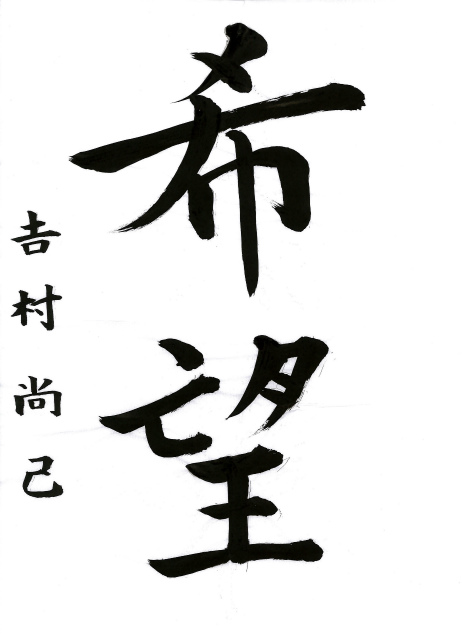 希望
吉村尚己